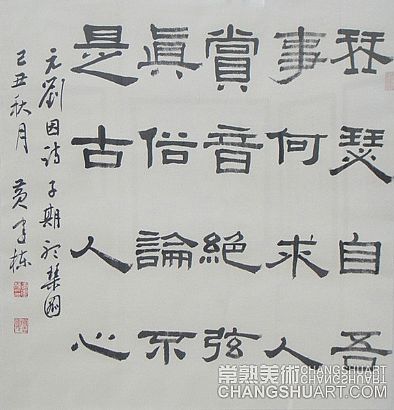 琴瑟自吾
事何求人
賞音絕弦
眞俗論不
是古人心
元劉因詩 子期聽琴圖
己丑秋月 黄棟
常熟美術 CHANGSHUART
CHANGSHUART.COM